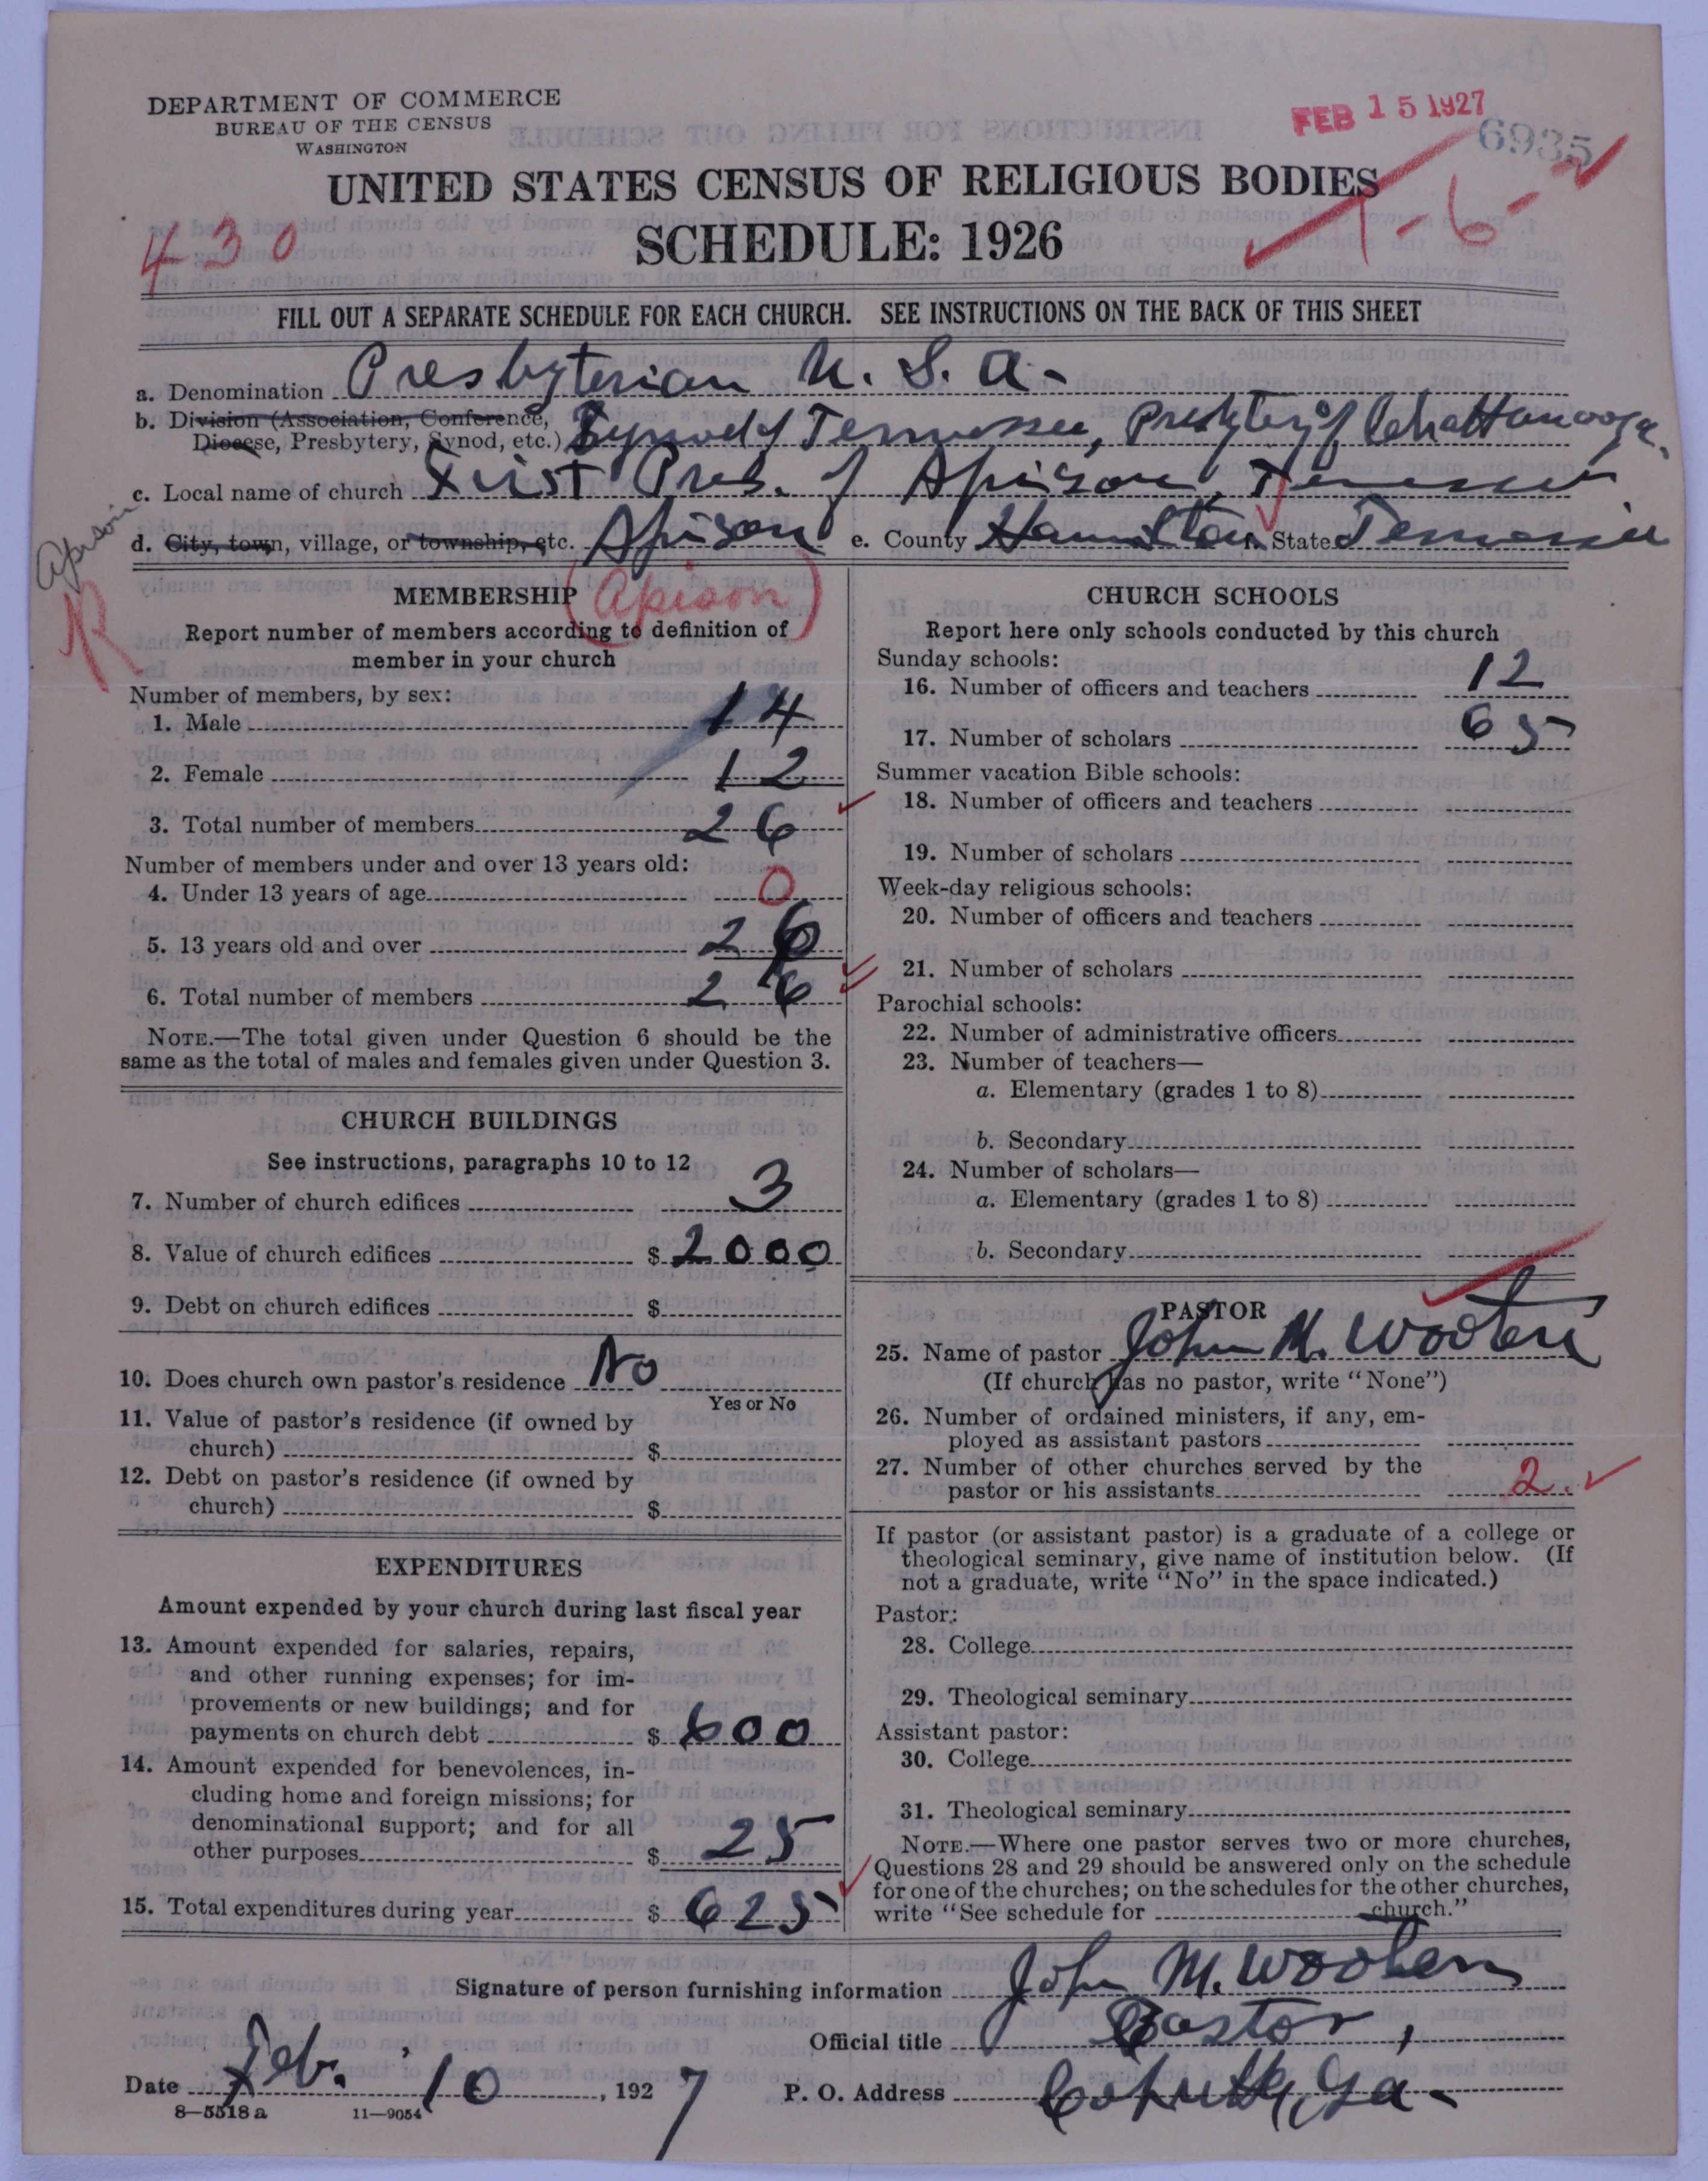 DEPARTMENT OF COMMERCE
BUREAU OF THE CENSUS
WASHINGTON
FEB 15 1927
6935
UNITED STATES CENSUS OF RELIGIOUS BODIES
SCHEDULE: 1926
430
1-6-
FILL OUT A SEPARATE SCHEDULE FOR EACH CHURCH. SEE INSTRUCTIONS ON THE BACK OF THIS SHEET
a. Denomination Presbyterian U. S. A.
b. Division (Association, Conference,
Diocese, Presbytery, Synod, etc.) Synod of Tennessee, Presbytery of Chattanooga.
c. Local name of church First Pres. of Apison, Tennessee
d. City, town, village, or township, etc. Apison e. County Hamilton f. State Tennessee
Apison
R
(Apison)
MEMBERSHIP
Report number of members according to definition of
member in your church
Number of members, by sex:
1. Male 14
2. Female 12
3. Total number of members 26
Number of members under and over 13 years old:
4. Under 13 years of age 0
5. 13 years old and over 26
6. Total number of members 26
NOTE.—The total given under Question 6 should be the
same as the total of males and females given under Question 3.
CHURCH BUILDINGS
See instructions, paragraphs 10 to 12
7. Number of church edifices 3
8. Value of church edifices $ 2000
9. Debt on church edifices $
10. Does church own pastor's residence No
Yes or No
11. Value of pastor's residence (if owned by
church) $
12. Debt on pastor's residence (if owned by
church) $
EXPENDITURES
Amount expended by your church during last fiscal year
13. Amount expended for salaries, repairs,
and other running expenses; for im-
provements or new buildings; and for
payments on church debt $ 600
14. Amount expended for benevolences, in-
cluding home and foreign missions; for
denominational support; and for all
other purposes $ 25
15. Total expenditures during year $ 625
CHURCH SCHOOLS
Report here only schools conducted by this church
Sunday schools:
16. Number of officers and teachers 12
17. Number of scholars 65
Summer vacation Bible schools:
18. Number of officers and teachers
19. Number of scholars
Week-day religious schools:
20. Number of officers and teachers
21. Number of scholars
Parochial schools:
22. Number of administrative officers
23. Number of teachers—
a. Elementary (grades 1 to 8)
b. Secondary
24. Number of scholars—
a. Elementary (grades 1 to 8)
b. Secondary
PASTOR
25. Name of pastor John M. Wooten
(If church has no pastor, write "None")
26. Number of ordained ministers, if any, em-
ployed as assistant pastors
27. Number of other churches served by the
pastor or his assistants 2.
If pastor (or assistant pastor) is a graduate of a college or
theological seminary, give name of institution below. (If
not a graduate, write "No" in the space indicated.)
Pastor:
28. College
29. Theological seminary
Assistant pastor:
30. College
31. Theological seminary
NOTE.—Where one pastor serves two or more churches,
Questions 28 and 29 should be answered only on the schedule
for one of the churches; on the schedules for the other churches,
write "See schedule for church."
Signature of person furnishing information John M. Wooten
Official title Pastor,
Date Feb. 10, 1927 P. O. Address Cohutta, Ga.
8—5518 a 11—9054